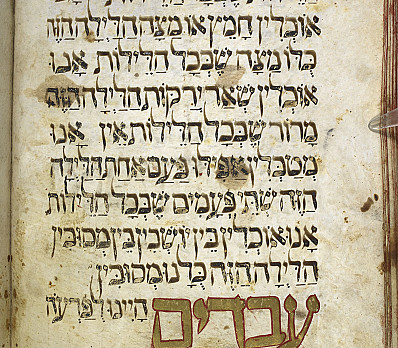 אוכלין חמץ או מצה הלילה הזה
כלו מצה שבכל הלילות אנו
אוכלין שאר ירקות הלילה הזה
מרור שבכל הלילות אין אנו
מטבלין אפילו פעם אחת הלילה
הזה שתי פעמים שבכל הלילות
אנו אוכלין בין יושבין בין מסובין
הלילה הזה כלנו מסובין
עבדים היינו לפרעה